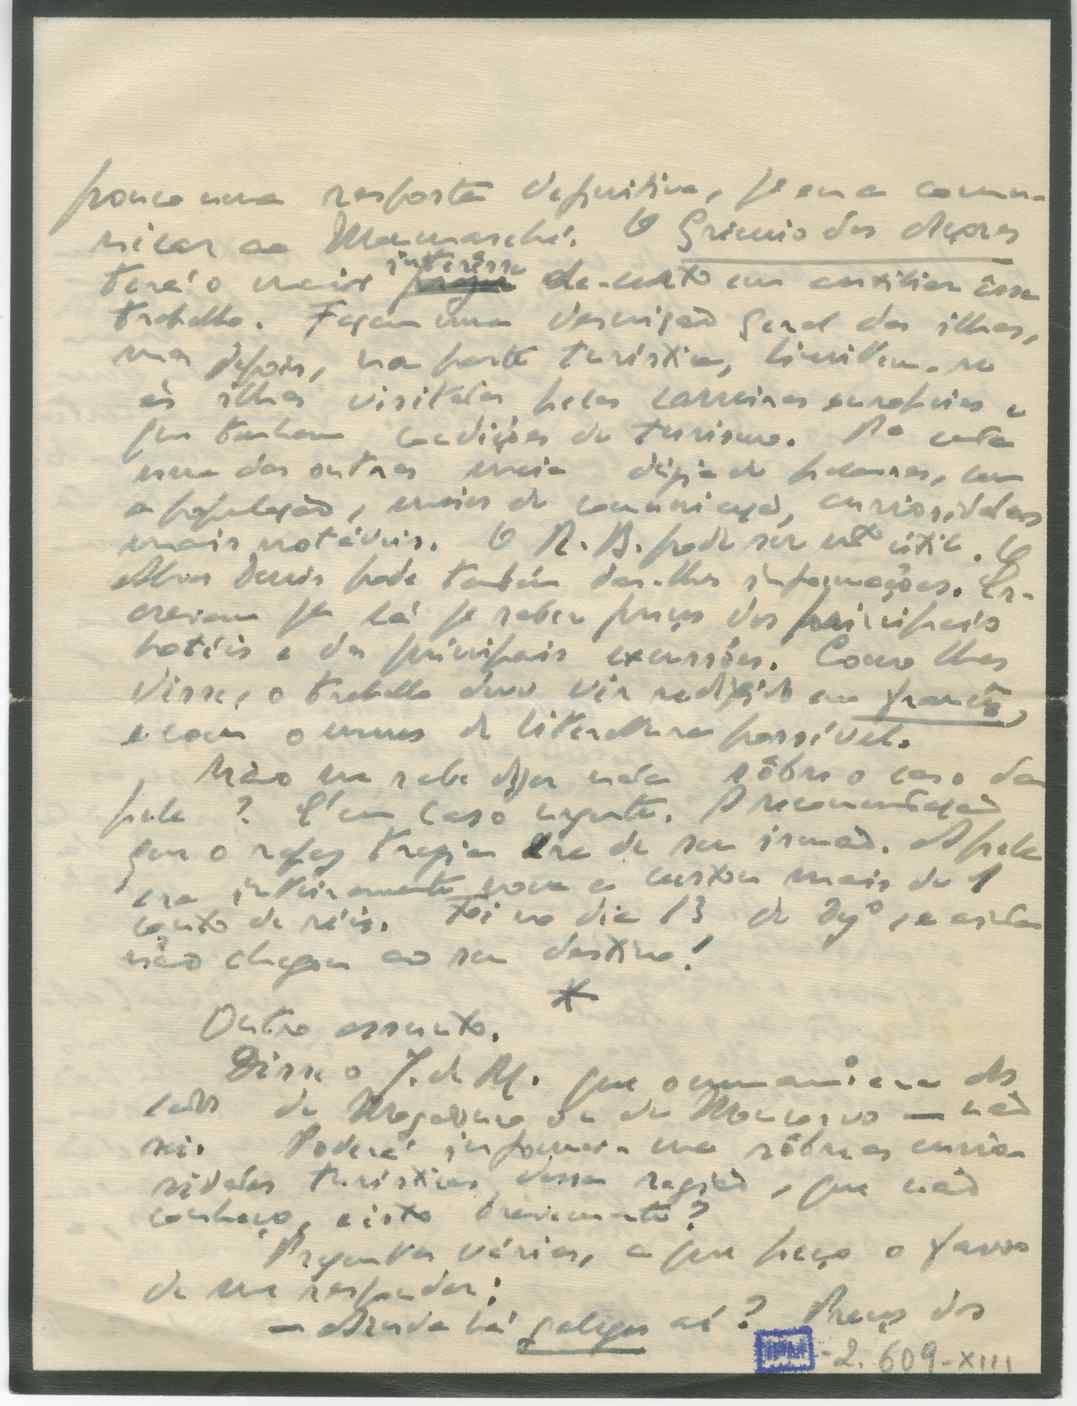 pouco uma resposta definitiva, p.ª eu a comu-
nicar ao Monmarché. O Grémio dos Açores
terá o maior interêsse de-certo em auxiliar êsse
trabalho. Façam uma descrição geral das ilhas,
mas depois, na parte turística, limitem-se
às ilhas visitadas pelas carreiras europeias e
que tenham condições de turismo. De cada
uma das outras meia dúzia de palavras, com
a população, meios de comunicação, curiosidades
mais notáveis. O R. B. pode ser mt.º útil. O
Alves Denis pode também dar-lhes informações. Es-
crevam p.ª lá p.ª saber preços dos principais
hotéis e das principais excursões. Como lhes
disse, o trabalho deve vir redigido em francês,
e com o menos de literatura possível.
Não me sabe dizer nada sôbre o caso da
pele? É um caso urgente. A recomendação
que o rapaz trazia era de seu irmão. A pele
era inteiramente nova e custou mais de 1
conto de réis. Foi no dia 13 de Dez.º, e ainda
não chegou ao seu destino!
*
Outro assunto.
Disse o J. de M. que o
lados de Mogadouro ou de Moncorvo — não
sei. Poderá informar-me sôbre as curio-
sidades turísticas dessa região, que não
conheço, e isto brevemente?
Preguntas várias, a que peço o favor
de me responder:
— Ainda há galegos aí? Preços dos
2.609-XIII